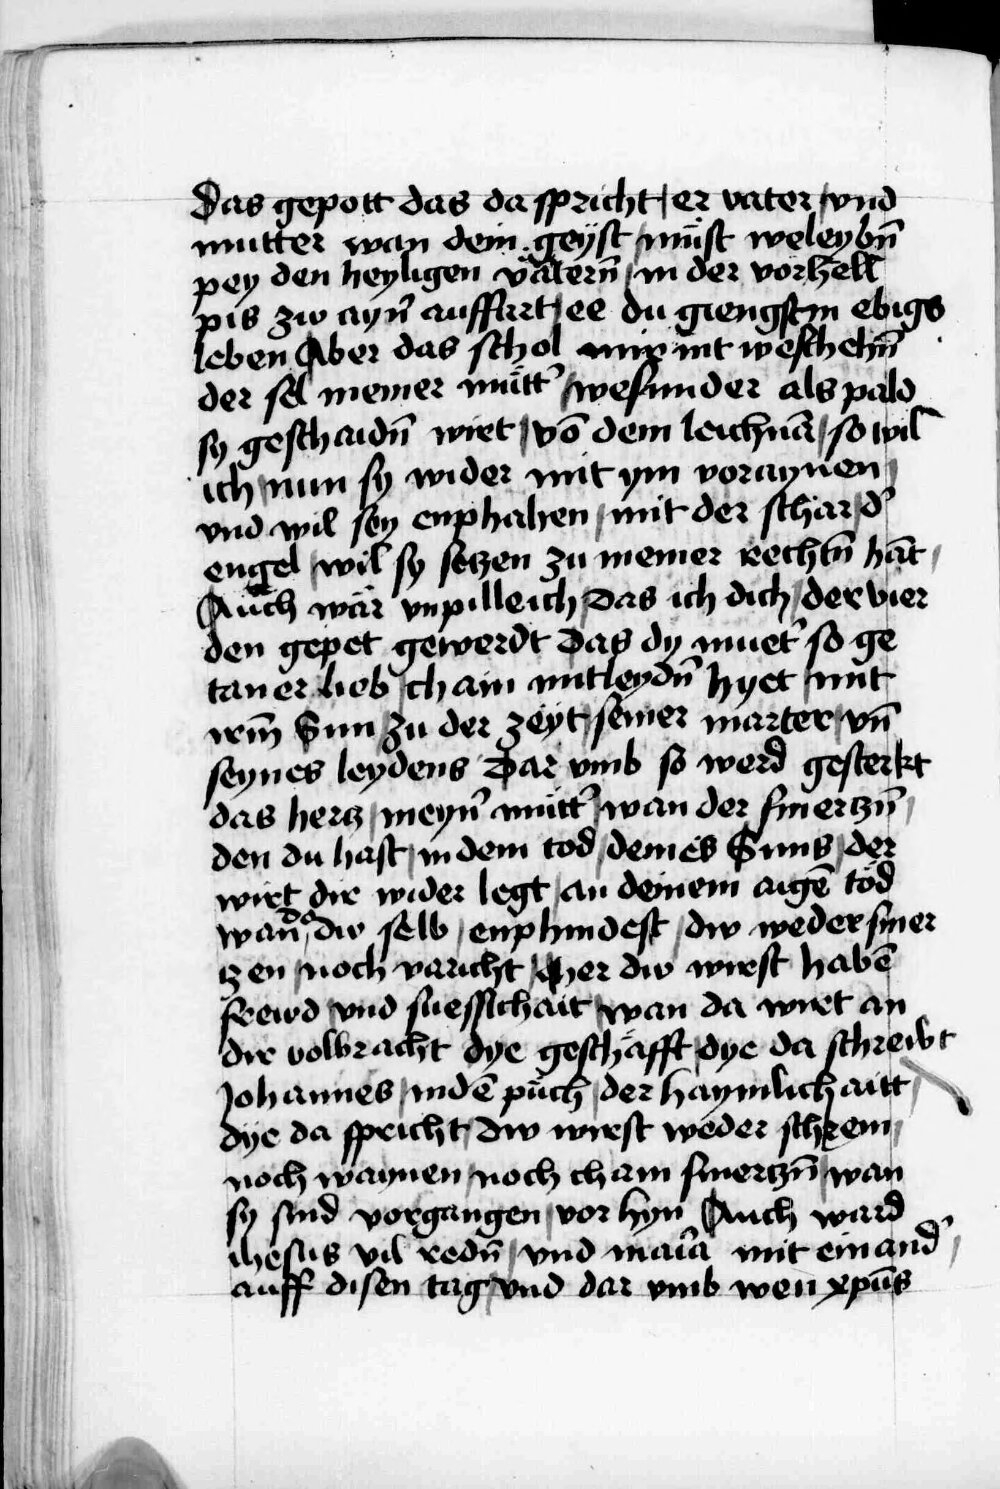 Das gepott das da spricht / er vater / vnd
mutter wan dein geyst / müst weleybn̄
pey den heyligen vätern̄ / in der vorhell
pis zw ayn᷑ auffart / ee du giengst in ebigs
leben Aber das schol mir nit weschehn̄
der sel meiner mütt᷑ / wesunder als pald
sy geschaidn̄ wirt / vō dem leichnā / so wil
ich nun sy wider mit ym voraynen /
vnd wil sey enphahen / mit der schar / d᷑
engel / wil sy setzen zu meiner rechtn̄ hāt /
Auch wär vnpilleich / Das ich dich / der vier
den gepet gewerdt Das dy muet᷑ so ge
taner lieb / chain mitleydn̄ hyet / mit
irm̄ Sun / zu der zeyt / seiner marter / vn̄
seynes leydens Dar vmb so werd gesterkt
das hertz / meyn᷑ mütt᷑ / wan der smertzn̄ /
den du hast / in dem tod / deines Suns / der
wirt dir wider legt / an deinem aigē tod
wan̄ do / dw selb / enphindest / dw weder smer
tzen / noch varicht / Aber dw wirst habē
frewd vnd suessichait / wan da wirt an
dir volbracht dye geschäfft / dye da schreibt
Johannes / in dē püch / der haymlichaitt /
dye da spricht / Dw wirst weder schreyn /
noch waynen / noch chain smertzn̄ / wan
sy sind vorgangen / vor hyn Auch ward
ihesus vil redn̄ / vnd maria mit einand᷑ /
auff disen tag / vnd dar vmb wen xpūs